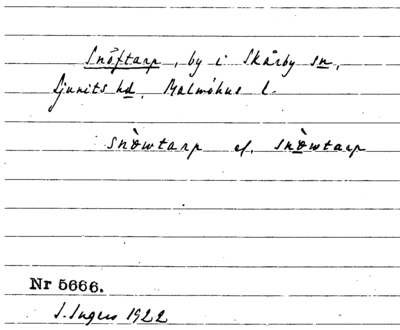 Snöftarp, by i Skårby sn,
Ljunits hd, Malmöhus l.
snòwtarp el. snòwtarp
Nr 5666.
S. Ingers 1922